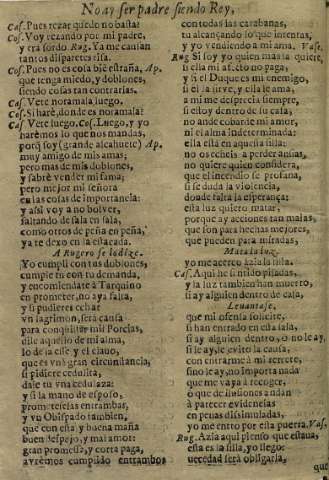 No ay ser padre siendo Rey,
Cas. Pues rezar quedo no basta?
Cos. Voy rezando por mi padre,
y era sordo. Rug. Ya me causan
tantos disparates risa.
Cos. Pues no es cosa bien estraña, Ap.
que tenga miedo, y doblones,
siendo cosas tan contrarias.
Cas. Vete noramala luego.
Cos. Si harè, donde es noramala?
Cas. Vete luego. Cos. Luego, y yo
harèmos lo que nos mandas,
porq soy (grande alcahuete) Ap.
muy amigo de mis amas;
pero mas de mis doblones,
y sabrè vender mi fama;
pero mejor mi señora
en las cosas de importancia:
y assi voy a no bolver,
saltando de sala en sala,
como otros de peña en peña,
ya te dexo en la estacada.
A Rugero se lo dize.
Yo cumpli con tus doblones,
cumple tu con tu demanda,
y encomiendate à Tarquino
en prometer, no aya falta,
y si pudieres echar
vn lagrimon, serà causa
para conquistar mil Porcias,
dile aquello de mi alma,
lo de la esse y el clauo,
que es vna gran circunstancia,
si pidiere cedulita,
dale tu vna cedulaza:
y si la mano de esposo,
prometeselas entrambas,
y vn Obispado tambien,
que con esta, y buena maña
buen despejo, y mal amor:
gran promessa, y corta paga,
avrèmos cumplido entrambos
con todas las carabanas,
tu alcançando lo que intentas,
y yo vendiendo a mi ama. Vase.
Rug. Si soy yo quien mas la quiere,
si ella mi afecto no paga,
y si el Duque es mi enemigo,
si el la sirve, y ella le ama,
a mi me desprecia siempre,
si estoy dentro de su casa,
no ande cobarde mi amor,
ni el alma indeterminada:
ella està en aquesta silla:
no os echeis a perder ansias,
no quiere quien considera,
que el incendio se profana,
si se duda la violencia,
donde falta la esperança:
esta luz quiero matar,
porque ay acciones tan malas,
que son para hechas mejores,
que pueden para miradas,
Mata la luz.
yo me acerco àzia la silla.
Cas. Aqui he sentido pisadas,
y la luz tambien han muerto,
si ay alguien dentro de casa,
Levantase.
que mi ofensa solicite,
si han entrado en esta sala,
si ay alguien dentro, ò no le ay,
si le ay, le evito la causa,
con entrarme à mi retrete,
sino le ay, no importa nada
que me vaya à recoger,
ò que de ilusiones andan
à parecer evidencias
en penas dissimuladas,
yo me entro por esta puerta. Vas.
Rug. Azia aqui pienso que estaua,
esta es la silla, yo llego:
necedad serà obligarla,
que